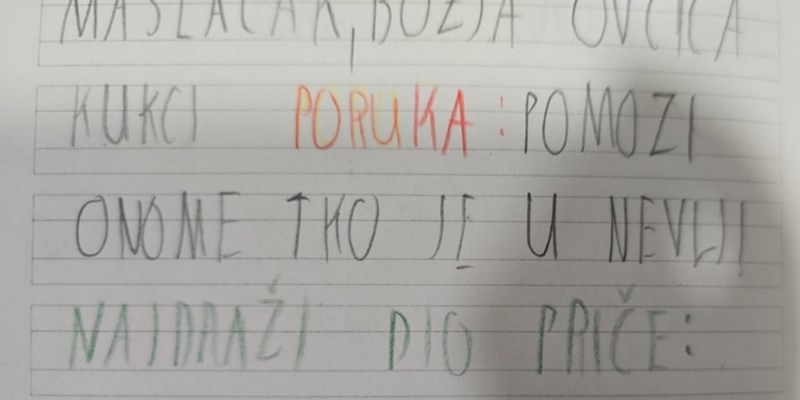 MASLAČAK, BOŽJA OVČICA
KUKCI PORUKA: POMOZI
ONOME TKO JE U NEVLJI
NAJDRAŽI DIO PRIČE: